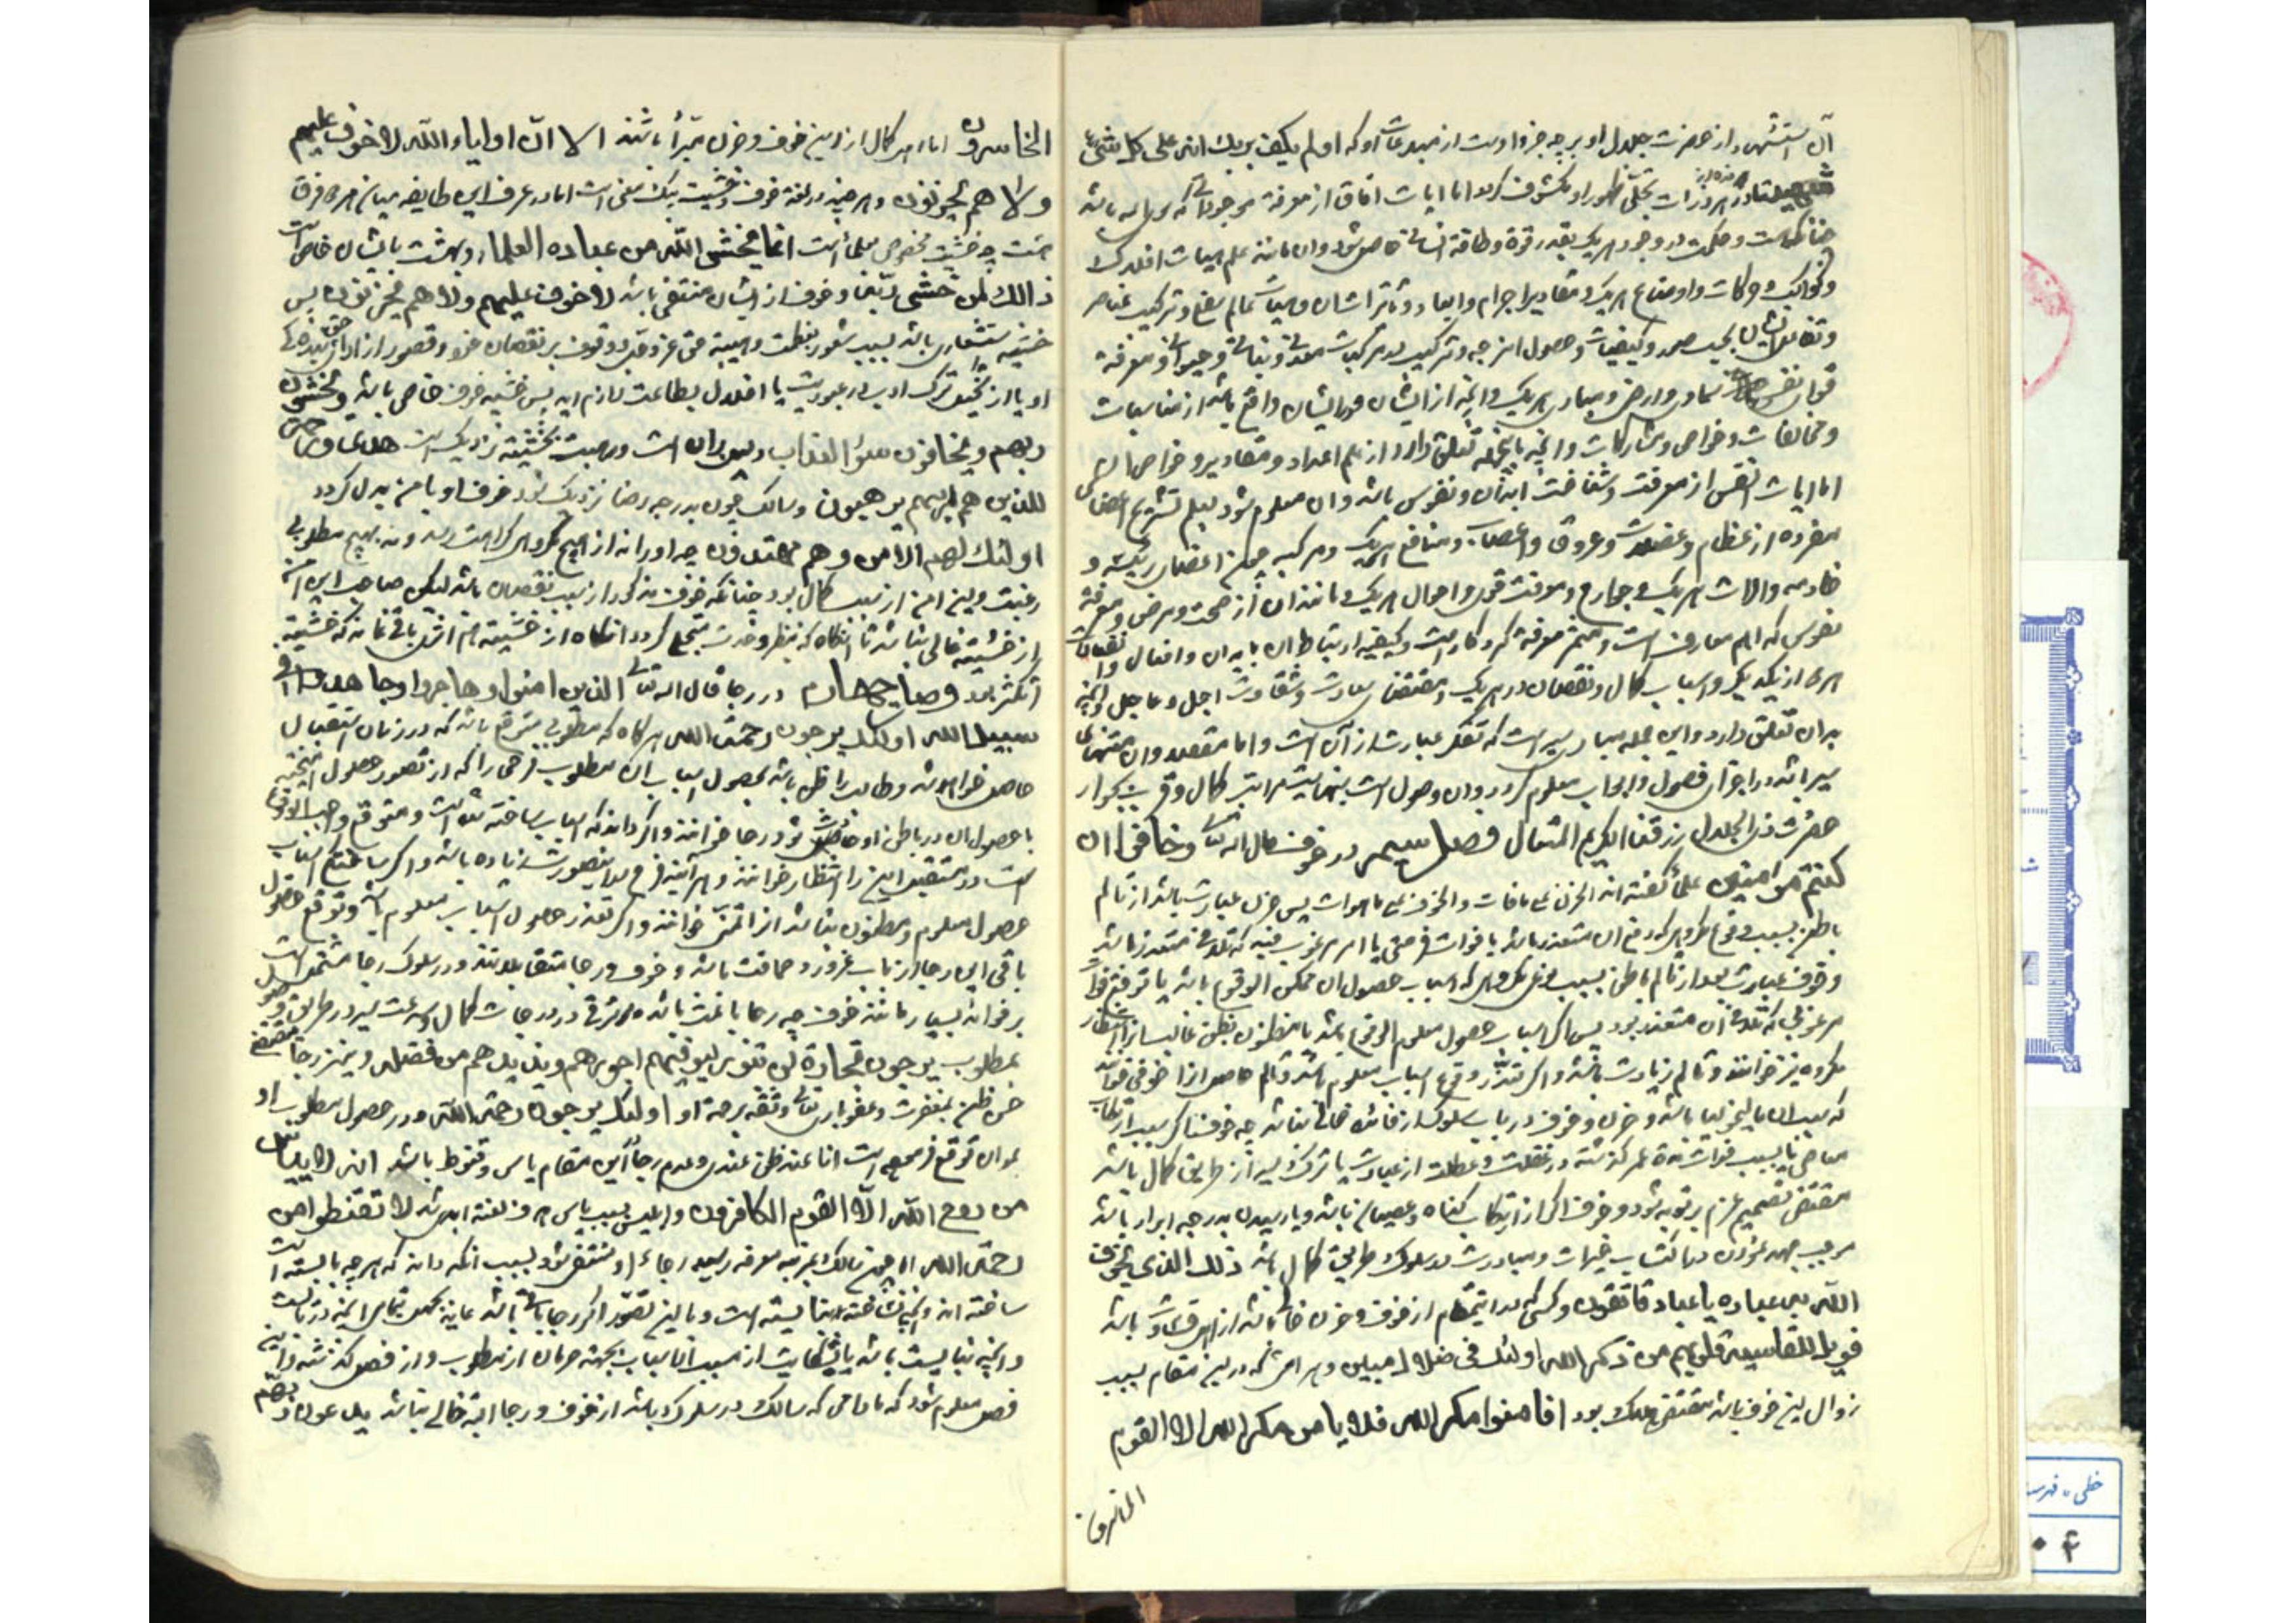 آن استشهاد از حضرت جلال او بر هر چه جز اوست از مبدعات او که اولم یکف بربک انه علی کل شیء
شهید تا در هر ذره از ذرات تجلی ظهور او مکشوف گردد اما ایات افاق از معرفة موجودات که سوی الله باشد
چنانکه هست و حکمت در وجود هر یک بقدر قوة و طاقة انسانی حاصل شود و ان مانند علم هیئات افلاک
و کواکب و حرکات و اوضاع هر یک و مقادیر اجرام و ابعاد و تاثیرات شان و هیئات عالم سفلی و ترکیب عناصر
و تفاعل ایشان بحسب صور و کیفیات و حصول امزجه و ترکیب مرکبات معدنی و نباتی و حیوانی و معرفة
قوای نفوس سماوی و ارضی و مبادی هر یک و انچه از ایشان و در ایشان واقع باشد از مناسبات
و مخالفات و خواص و مشارکات و انچه باین جمله تعلق دارد از علم اعداد و مقادیر و خواص ان
اما ایات انفس از معرفت و شناخت ابدان و نفوس باشد و ان معلوم شود بعلم تشریح اعضای
مفرده از عظام و عضلات و عروق و اعصاب و منافع هر یک و مرکبه چون اعضای رئیسه و
خادمه و الات هر یک و جوارح و معرفت قوی و احوال هر یک و مانند ان از صحت و مرض و معرفة
نفوس که اهم معارف است و مثمر معرفة کردگار است و کیفیة ارتباط ان بابدان و افعال و انفعالات
هر دو از یکدیگر و اسباب کمال و نقصان در هر یک و مقتضی سعادت و شقاوت اجل و عاجل و انچه
بدان تعلق دارد و این جمله مبادی سیر است که تفکر عبارت از آن است و اما مقصد و ان منتهای
سیر باشد در اخر این فصول و ابواب معلوم گردد و ان وصول است بنهایت مراتب کمال و قرب بجوار
حضرت ذو الجلال رزقنا الکریم المتعال فصل سیم در خوف قال الله تعالی و خافون ان
کنتم مؤمنین علما گفته اند الحزن علی مافات و الخوف علی ما هو ات پس حزن عبارت باشد از تالم
باطن بسبب وقوع مکروهی که دفع ان متعذر باشد یا فوات فرصتی یا امر مرغوب فیه که تلافی متعذر باشد
و خوف عبارت بود از تالم باطن بسبب وقوع مکروهی که اسباب حصول ان ممکن الوقوع باشد یا توقع فوات
مرغوبی که تلافی ان متعذر بود پس اگر اسباب حصول معلوم الوقوع باشد یا مظنون بظن غالب انرا انتظار
مکروه نیز خوانند و تالم زیادت باشد و اگر تعذر وقوع اسباب معلوم باشد و تالم حاصل انرا خوفی خوانند
که سبب ان مالیخولیا باشد و حزن و خوف در باب سلوک از فائده خالی نباشد چه خوف اگر بسبب ارتکاب
معاصی یا بسبب فوات مدة عمر گذشته در غفلت و عطلت از عبادت یا ترک سیر از طریق کمال باشد
مقتضی تصمیم عزم بر توبه شود و خوف اگر از ارتکاب گناه و عصیان باشد و یا رسیدن بدرجه ابرار باشد
موجب جهد نمودن در اکتساب خیرات و مبادرت در سلوک طریق کمال باشد ذلک الذی یخوف
الله به عباده یا عباد فاتقون و کسی که در این مقام از خوف و حزن خالی باشد از اهل قساوت باشد
فویل للقاسیة قلوبهم من ذکر الله اولئک فی ضلال مبین و هر امن که در این مقام بسبب
زوال این خوف باشد مقتضی هلاک بود افامنوا مکر الله فلا یامن مکر الله الا القوم
الخاسرون
الخاسرون اما اهل کمال از این خوف و حزن مبرأ باشند الا ان اولیاء الله لا خوف علیهم
و لا هم یحزنون و هر چند در لغة خوف و خشیت بیک معنی است اما در عرف این طایفه میان هر دو فرق
هست چه خشیت مخصوص بعلما است انما یخشی الله من عباده العلماء و بهشت بایشان خاص است
ذالک لمن خشی ربه و خوف از ایشان منتفی باشد لا خوف علیهم ولا هم یحزنون پس
خشیه استشعاری باشد بسبب شعور بعظمت و هیبة حق عز و علا و وقوف بر نقصان خود و قصور از ادای حق بندگی
او یا از تخیل ترک ادب در عبودیت یا اخلال بطاعت لازم اید پس خشیه خوف خاص باشد و یخشون
ربهم و یخافون سوء العذاب دلیل بران است و رهبت بخشیة نزدیک است هدی و رحمة
للذین هم لربهم یرهبون و سالک چون بدرجه رضا نزدیک شود خوف او بامن بدل گردد
اولئک لهم الامن و هم مهتدون چه او را نه از هیچ مکروه کراهت بود و نه بهیچ مطلوب
رغبت و این امن از سبب کمال بود چنانکه خوف مذکور از سبب نقصان باشد لیکن صاحب این امن
از خشیة خالی نباشد تا انگاه که بنظر وحدت متجلی گردد انگاه از خشیة هم اثری باقی نماند که خشیة
از تکثر بود فصل چهارم در رجا قال الله تعالی الذین امنوا و هاجروا و جاهدوا فی
سبیل الله اولئک یرجون رحمة الله هرگاه که مطلوبی متوقع باشد که در زمان استقبال
حاصل خواهد شد و طالب را ظن باشد بحصول اسباب ان مطلوب فرحی را که از تصور حصول امیخته
با حصول ان در باطن او حادث شود رجا خوانند و اگر داند که اسباب ساخته شده است و متوقع واجب الوقوع
است در مستقبل این را انتظار خوانند و هر اینه فرح در این صورت زیاده باشد و اگر ساختگی اسباب
حصول معلوم و مظنون نباشد انرا تمنی خوانند و اگر تعذر حصول اسباب معلوم باشد و توقع حصول
باقی این رجا را از باب غرور و حماقت باشد و خوف و رجا متقابلانند و در سلوک رجا مشتمل است
بر فوائد بسیار مانند خوف چه رجا باعث باشد بر ترقی در درجات کمال و سرعت سیر در طریق وصول
بمطلوب یرجون تجارة لن تبور لیوفیهم اجورهم و یزیدهم من فضله و نیز رجا مقتضی
حسن ظن بمغفرت و عفو باری تعالی و ثقه برحمة او اولئک یرجون رحمة الله و در حصول مطلوب او
بدان توقع فرموده است انا عند ظن عبدی و عدم رجا از این مقام یاس و قنوط باشد انه لا ییأس
من روح الله الا القوم الکافرون و ابلیس بسبب یاس هدف لعنة ابدی شد لا تقنطوا من
رحمة الله اما چون سالک بمرتبه معرفه رسد رجاء او منتفی شود بسبب انکه داند که هر چه بایسته است
ساخته اند و انچه نساخته اند نبایسته است و با این تصور اگر رجا باقی باشد عاید بجهل تمامی انچه در بایست
و انچه نبایست باشد یا شکایت از مسبب الاسباب بجهة حرمان از مطلوب و از فصل گذشته و این
فصل معلوم شود که مادامی که سالک در سلوک باشد از خوف و رجا البته خالی نباشد یدعون ربهم
خطی، فهرست